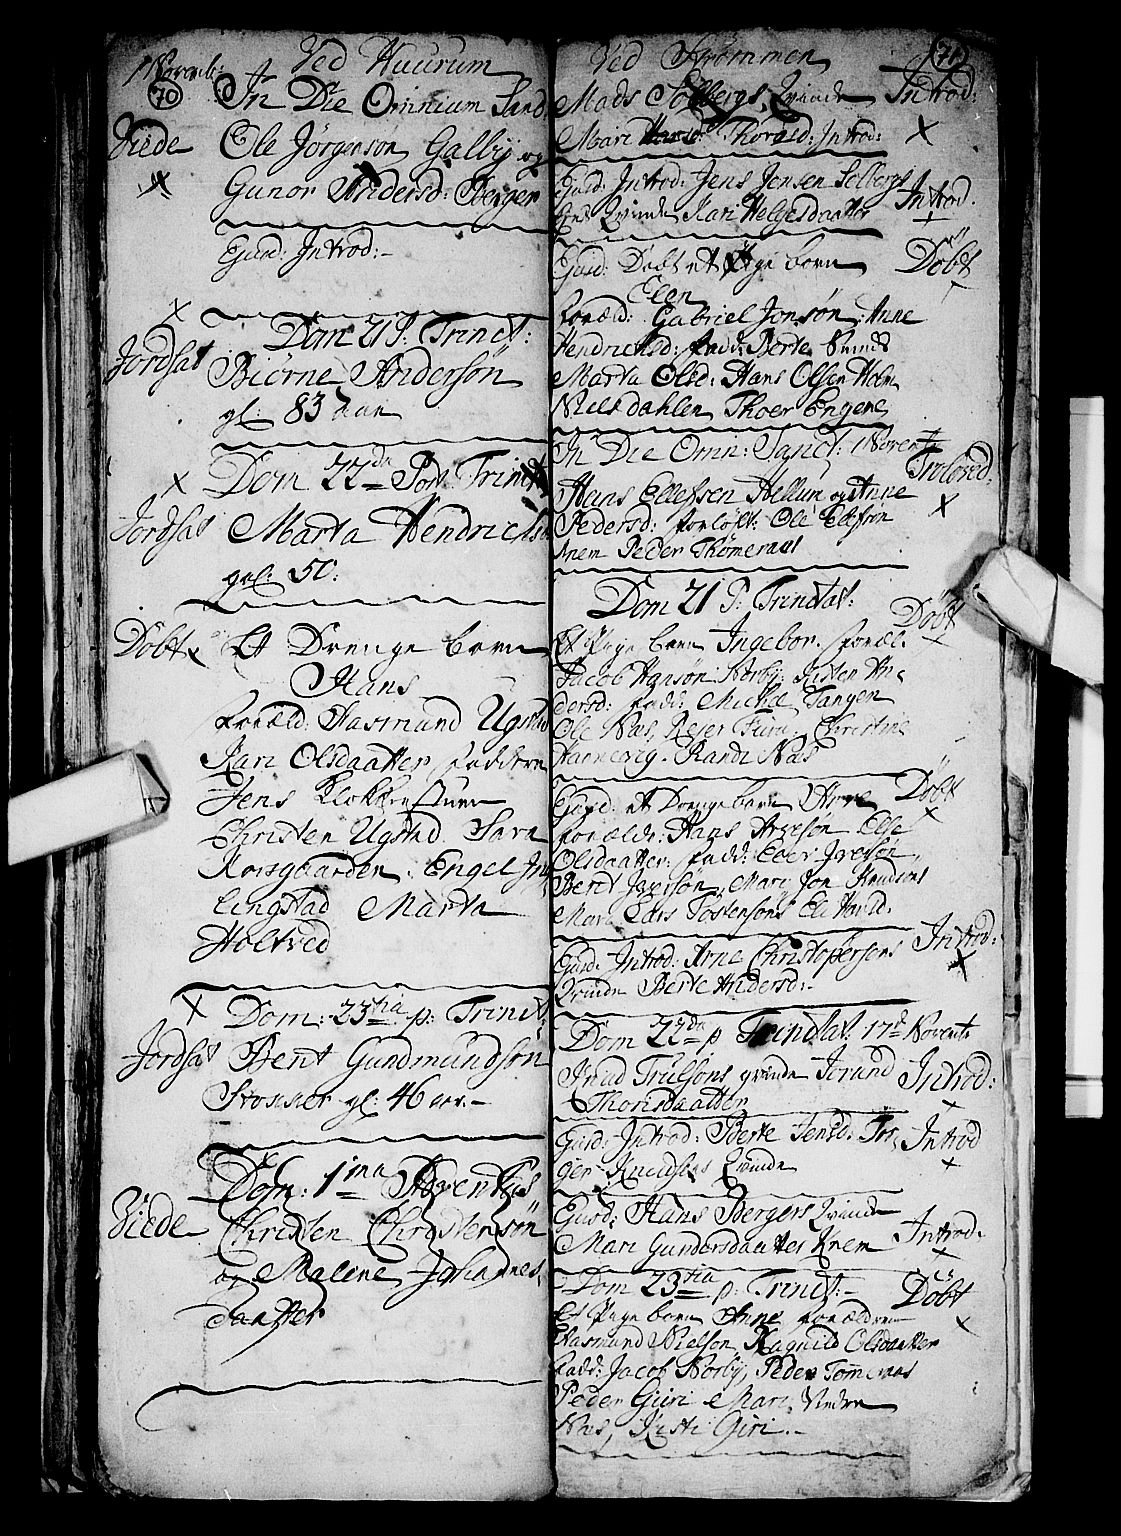 1 Novemb: Ved Huurum
70 In Die Omnium Sand
Viede Ole Jörgensön Galby og
Gunor Andersd: Berger
Eysd: Introd:
Dom 21 P: Trinit:
Jordsat Biörne Andersön
gl: 83 Aar
Dom 22da Post Trinit
Jordsat Marta Hendrichsd
gl: 50:
Döbt Et Drenge barn
Hans
foræld: Aasmund Ugstad
Kari Olsdaatter fadderne
Jens Klokkerstuen
Christen Ugstad Sara
Korsgaarden. Engel
Lingstad Marta
Holtved
Dom: 23tia p: Trinit
Jordsat Bent Gundmundsön
gl: 46 aar.
Dom: 1ma Adventus
Viede Christen Christensön
og Malene Johannes
daatter
Ved Strömmen 71
Mads Solbergs Qvinde Introd:
Mari Thorald: Introd:
Eysd: Introd: Jens Jensen Solbergs Introd.
Qvinde Kari Helgesdaatter
Eysd: Döbt et Pige barn Döbt
Elen
foræld: Gabriel Jonsön, Anne
Hendrichsd: fadd: Berte
Marta Olsd: Hans Olsen Holm
Niels dahlen Thoer Engene
In Die Omn: Sanct: 1 Novembr
Hans Ellefsen Hellum og Anne Trolovd.
Pedersd: forlöft: Ole Ellefsön
Knem Peder Thömeraas
Dom 21 P: Trinitat: Döbt
Et Pige barn Ingebor. foræl.
Jacob Hansön Norby. Kisten An
dersd: fadd: Michel Tangen
Ole Nas, Reier Furu, Christine
Hannevig. Randi Nas
Eysd: et Drenge barn Arne Döbt
forældr: Hans Arvesön Else
Olsdaatter. fadd: Iver Iversön
Bent Iversön, Mari Jon Knudsens
Mari Lars Tostensöns Eli Harild.
Eysd: Introd: Arne Christophersöns Introd:
Qvinde Berte Andersd:
Dom 22da p Trinitat: 17d Novembr
Knud Trulsöns qvinde Jorund Introd:
Thorisdaatter
Eysd: Introd: Berte Jensd: Tor, Introd
ger Knudsöns Qvinde
Eysd: Hans Bergers Qvinde Introd.
Mari Gundersdaatter Knem
Dom 23tia p: Trinit: Döbt
Et Pige barn Anne forældrene
Aasmund Nielsön Ragnild Olsdaatter
fadd: Jacob Norby, Peder Tömeraas
Peder Giiri Mari Vindren
Nas, Kisti Giri.